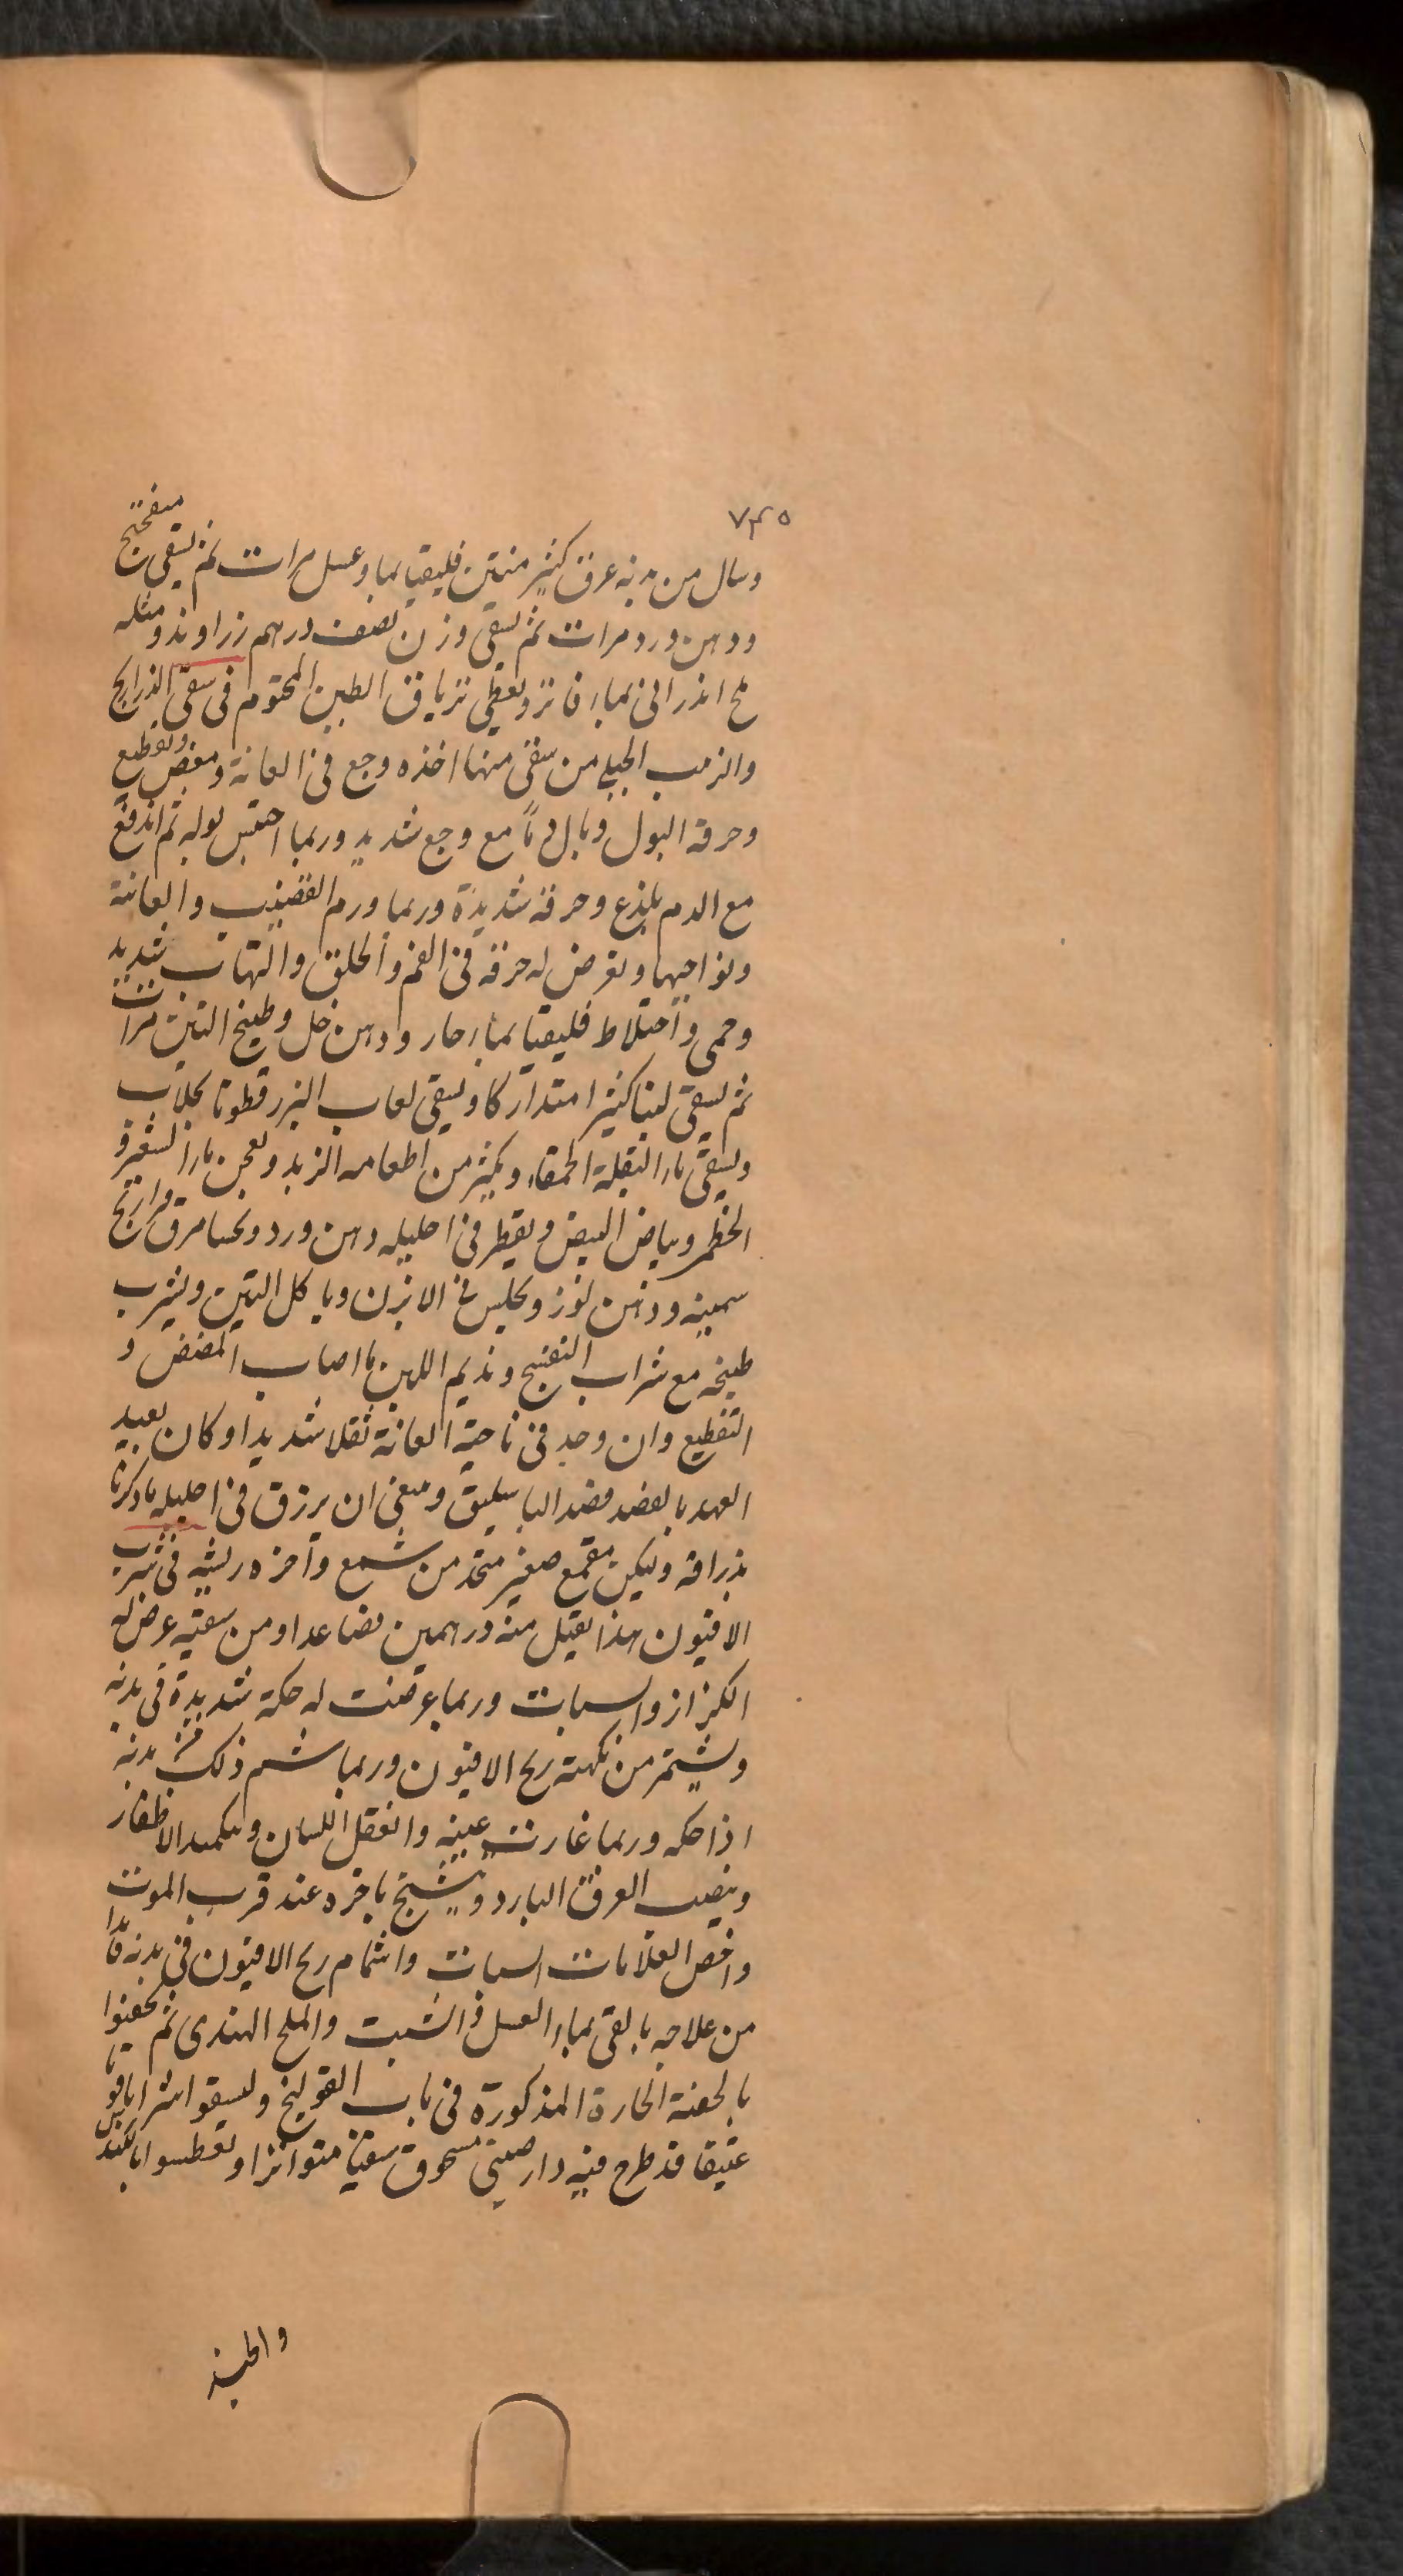 ٧٣٥
وسال من بدنه عرق كثير منتن فليقيا بماء وعسل مرات ثم يسقى ميفختج
ودهن ورد مرات ثم يسقى وزن نصف درهم زراوند ومثله
ملح اندرانى بماء فاتر ويعطى ترياق الطين المختوم فى سقى الذراريح
والارنب الجبلى من سقى منها اخذه وجع فى العانة ومغص وتقطيع
وحرقة البول وبال دمًا مع وجع شديد وربما احتبس بوله ثم اندفع
مع الدم بلذع وحرقة شديدة وربما ورم القضيب والعانة
ونواحيها ويعرض له حرقة فى الفم والحلق والتهاب شديد
وحمى واختلاط فليقيا بماء حار ودهن خل وطبيخ التين مرات
ثم يسقى لبنا كثيرا متداركا ويسقى لعاب البزرقطونا بجلاب
ويسقى ماء البقلة الحمقاء ويكثر من اطعامه الزبد ويحقن بماء الشعير و
الخطمى وبياض البيض ويقطر فى احليله دهن ورد ويحسا مرق فراريج
سمينه ودهن لوز ويجلس فى الابزن وياكل التين ويشرب
طبيخه مع شراب البنفسج ونديم اللبن ما اصاب المغص و
التقطيع وان وجد فى ناحية العانة ثقلا شديدا وكان بعيد
العهد بالفصد فصد الباسليق وينبغى ان يزرق فى احليله ما ذكرنا
بزراقة وليكن بقمع صغير متخذ من شمع وآخره ريشه فى شرب
الافيون هذا يقتل منه درهمين فصاعدا ومن سقيه عرض له
الكزاز والسبات وربما عرضت له حكة شديدة فى بدنه
ويشتم من نكهته ريح الافيون وربما شم ذلك من بدنه
اذا حكه وربما غارت عينه وانعقل اللسان ويكمد الاظفار
وينصب العرق البارد ويتشنج باخره عند قرب الموت
واخص العلامات السبات واشمام ريح الافيون فى بدنه فابدا
من علاجه بالقى بماء العسل والشبت والملح الهندى ثم يحقنوا
بالحقنة الحارة المذكورة فى باب القولنج وليسقوا شرابا قويا
عتيقا قد طرح فيه دارصينى مسحوق سقيا متواترا ويعطسوا بالكندس
والجند